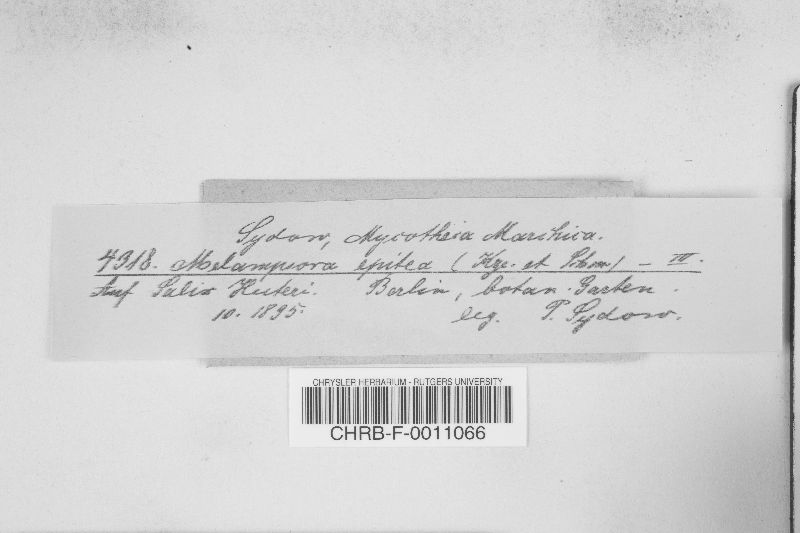 Sydow, Mycotheca Marchica.
4318. Melampsora epitea (Kze. et Schm.) – III.
Auf Salix Huteri. Berlin, botan. Garten.
10. 1895. leg. P. Sydow.
CHRYSLER HERBARIUM - RUTGERS UNIVERSITY
CHRB-F-0011066